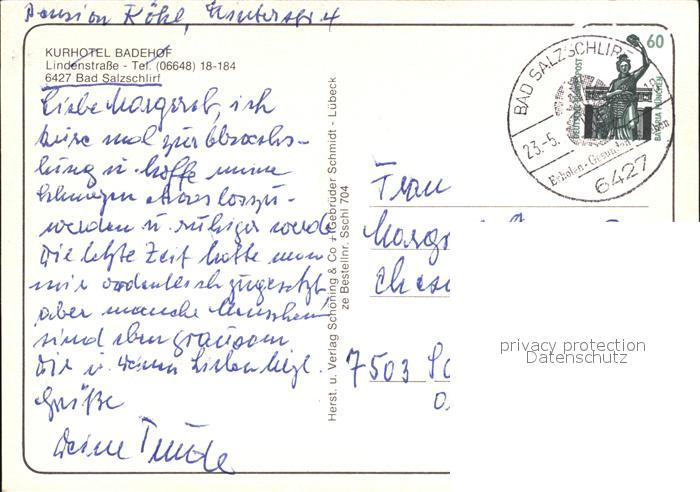 Pension Köhl, Hinterstr. 4
KURHOTEL BADEHOF
Lindenstraße - Tel. (06648) 18-184
6427 Bad Salzschlirf
Liebe Margaret, ich
kure mal zur Abwechs-
lung u. hoffe meine
Schmerzen etwas loszu-
werden u. ruhiger werde
Die letzte Zeit hatte man
mir ordentlich zugesetzt
aber manche Menschen
sind eben grausam.
Dir u. Deinen Lieben herzl.
Grüße
Deine Trude
Herst. u. Verlag Schöning & Co + Gebrüder Schmidt - Lübeck
ze Bestellnr. Sschl 704
BAD SALZSCHLIRF
23.-5.
Erholen - Gesunden
6427
60
DEUTSCHE BUNDESPOST
BAVARIA MÜNCHEN
Frau
Margr
7503
privacy protection
Datenschutz